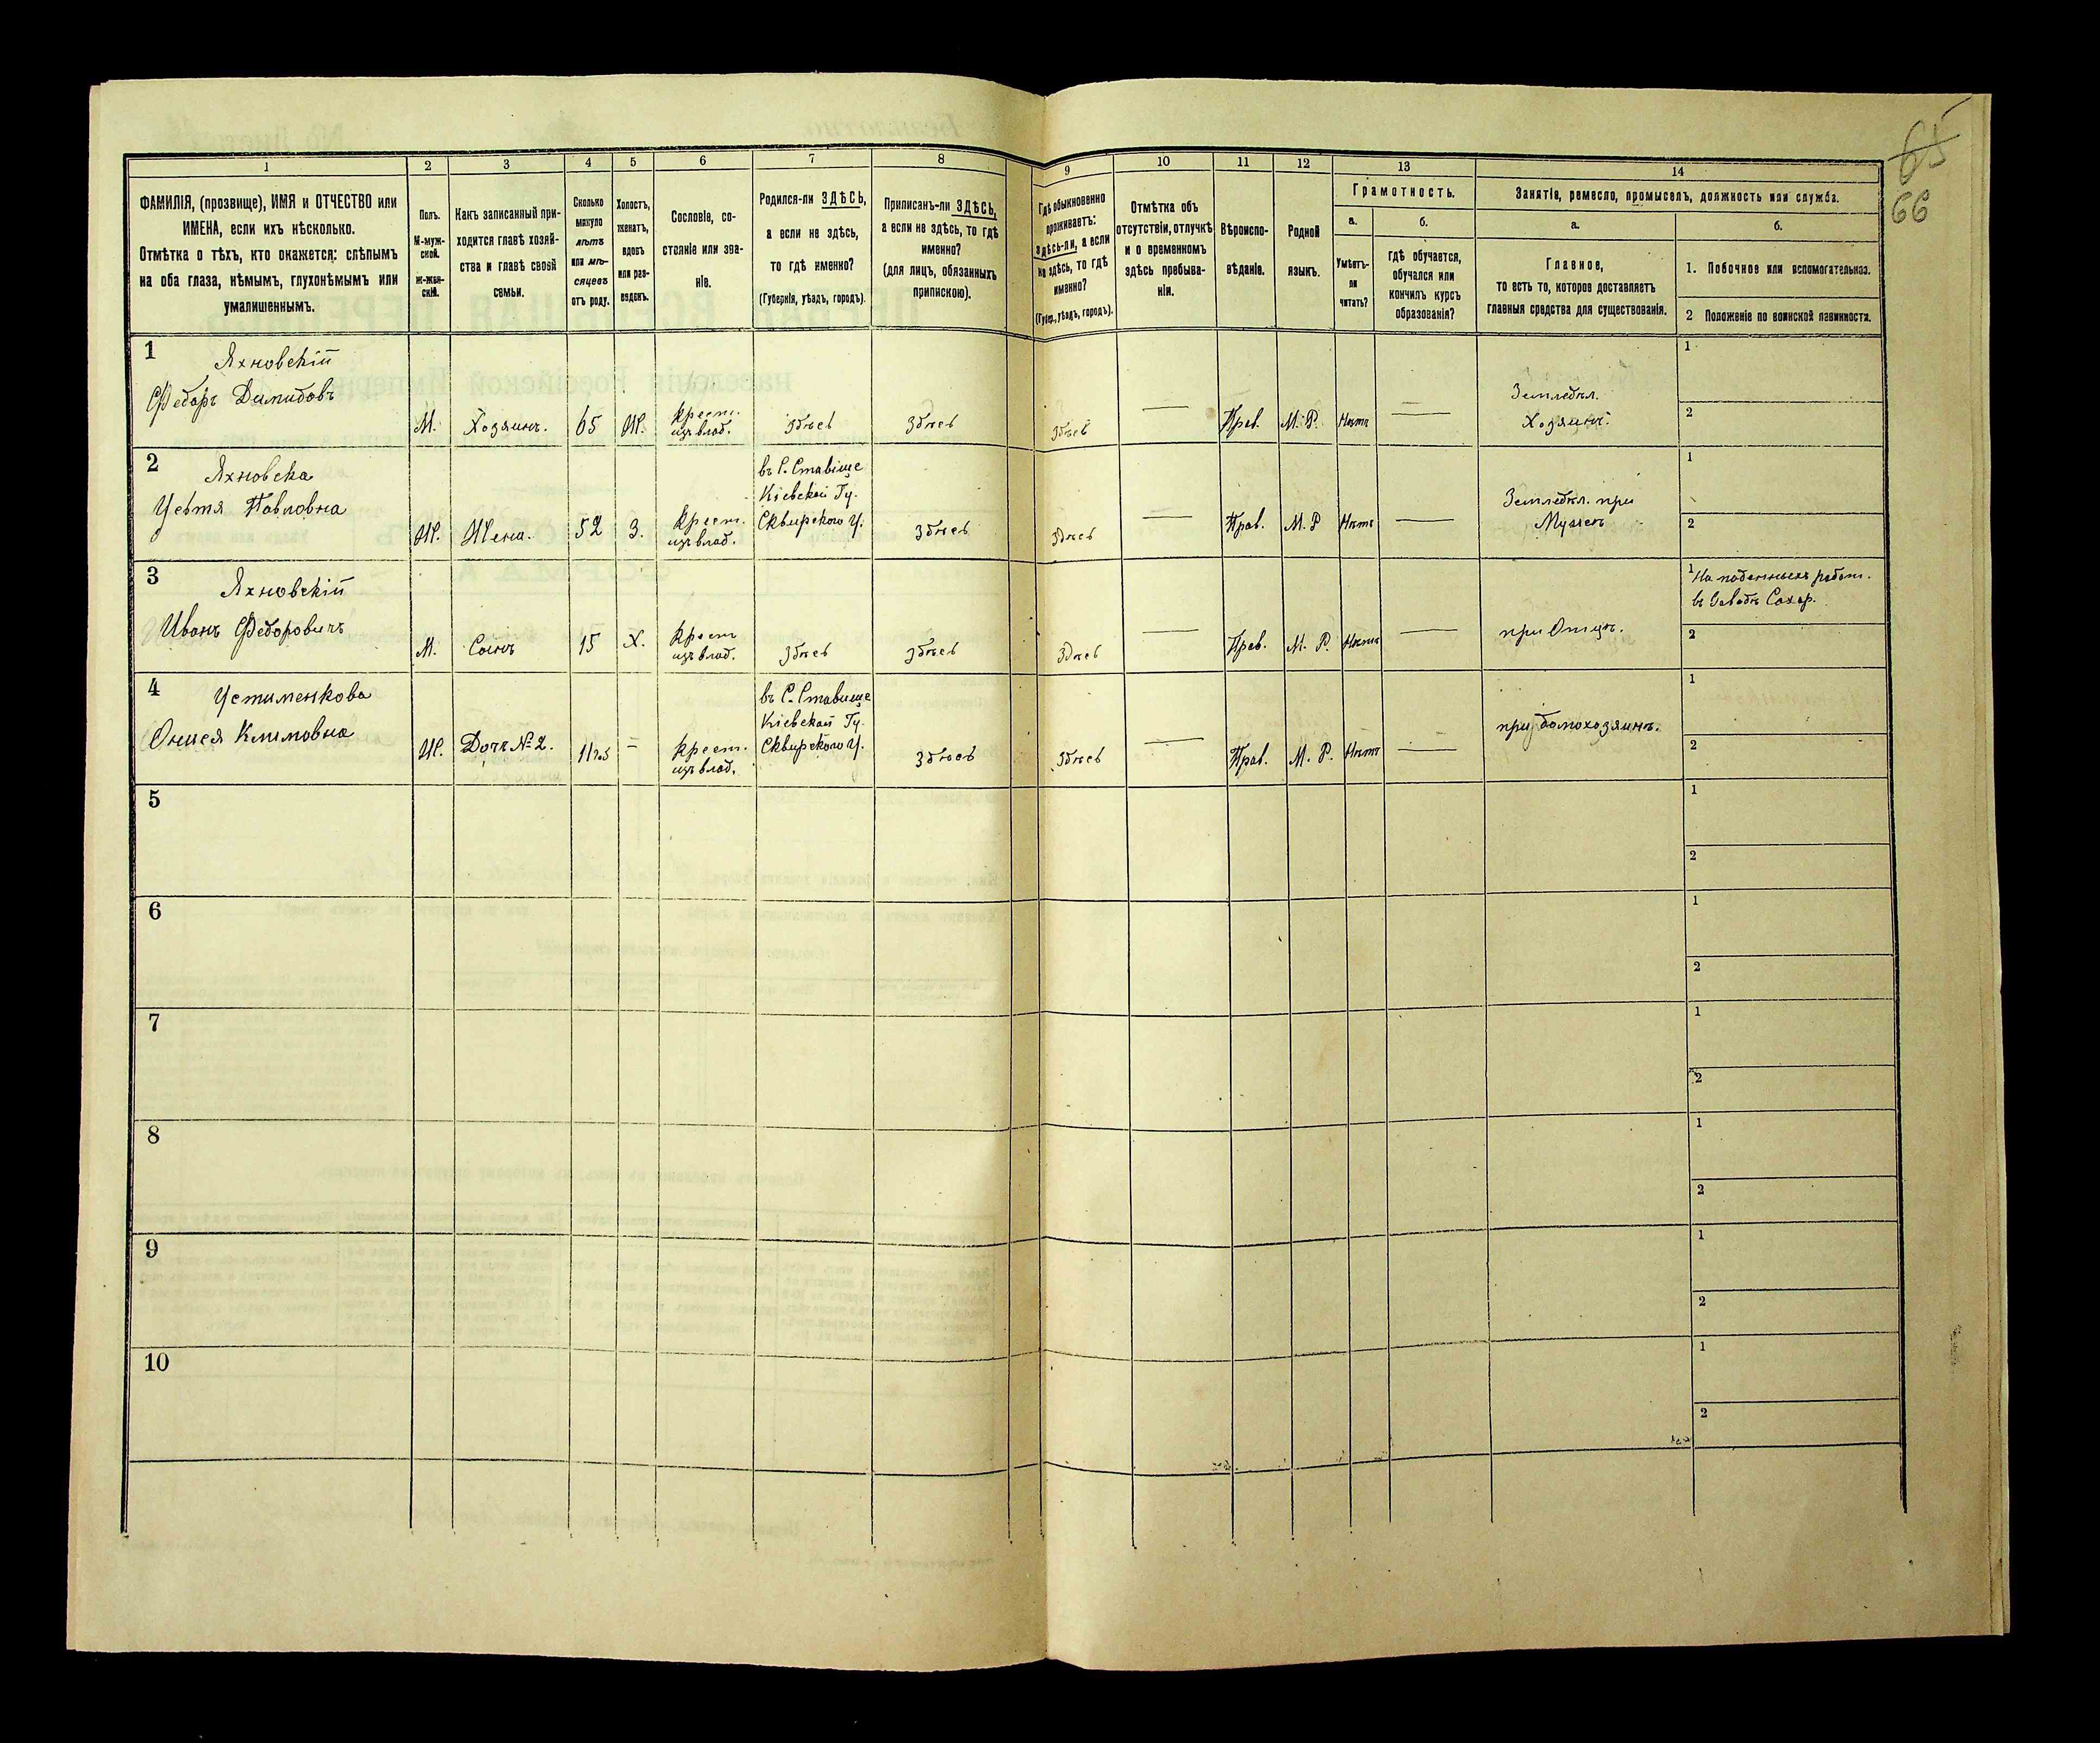 65
66
1 2 3 4 5 6 7 8 9 10 11 12 13 14
ФАМИЛІЯ, (прозвище), ИМЯ и ОТЧЕСТВО или
ИМЕНА, если ихъ нѣсколько.
Отмѣтка о тѣхъ, кто окажется: слѣпымъ
на оба глаза, нѣмымъ, глухонѣмымъ или
умалишеннымъ.
Полъ.
М-муж-
ской.
Ж-жен-
скій.
Какъ записанный при-
ходится главѣ хозяй-
ства и главѣ своей
семьи.
Сколько
минуло
лѣтъ
или мѣ-
сяцевъ
отъ роду.
Холостъ,
женатъ,
вдовъ
или раз-
веденъ.
Сословіе, со-
стояніе или зва-
ніе.
Родился-ли ЗДѢСЬ,
а если не здѣсь,
то гдѣ именно?
(Губернія, уѣздъ, городъ).
Приписанъ-ли ЗДѢСЬ,
а если не здѣсь, то гдѣ
именно?
(для лицъ, обязанныхъ
припискою).
Гдѣ обыкновенно
проживаетъ:
здѣсь-ли, а если
не здѣсь, то гдѣ
именно?
(Губер., уѣздъ, городъ).
Отмѣтка объ
отсутствіи, отлучкѣ
и о временномъ
здѣсь пребыва-
ніи.
Вѣроиспо-
вѣданіе.
Родной
языкъ.
Грамотность.
а.
Умѣетъ-
ли
читать?
б.
гдѣ обучается,
обучался или
кончилъ курсъ
образованія?
Занятія, ремесло, промыселъ, должность или служба.
а.
Главное,
то есть то, которое доставляетъ
главныя средства для существованія.
б.
1. Побочное или вспомогательное.
2 Положеніе по воинской повинности.
1
Яхновскій
Федоръ Демидовъ
М.
Хозяинъ.
65
Ж.
Крест.
изъ влад.
Здѣсь
Здѣсь
Здѣсь
—
Прав.
М. Р.
Нѣтъ
—
Земледѣл.
Хозяинъ.
1
2
2
Яхновска
Устя Павловна
Ж.
Жена.
52
З.
Крест.
изъ влад.
въ С. Ставище
Кіевской Гу.
Сквирского У.
Здѣсь
Здѣсь
—
Прав.
М. Р
Нѣтъ
—
Земледѣл. при
Мужѣ
1
2
3
Яхновскій
Иванъ Федоровичъ
М.
Сынъ
15
Х.
Крест
изъ влад.
Здѣсь
Здѣсь
Здѣсь
—
Прав.
М. Р.
Нѣтъ
—
при Отцѣ.
1 На поденныхъ работ.
въ Заводѣ Сахар.
2
4
Устименкова
Климовна
Ж.
Доч. № 2.
—
Крест.
изъ влад.
въ С. Ставище
Кіевской Гу.
Сквирского У.
Здѣсь
Здѣсь
—
Прав.
М. Р.
Нѣтъ
—
при домохозяинѣ.
1
2
5
1
2
6
1
2
7
1
2
8
1
2
9
1
2
10
1
2